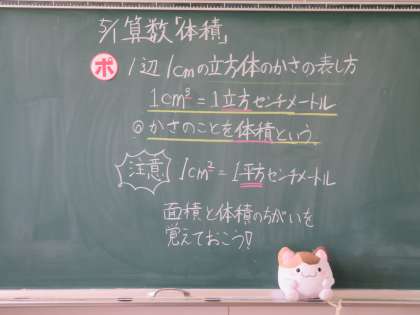 5/1 算数「体積」
ポ 1辺1cmの立方体のかさの表し方
1cm³=1立方センチメートル
◎かさのことを体積という。
注意 1cm²=1平方センチメートル
面積と体積のちがいを
覚えておこう!!